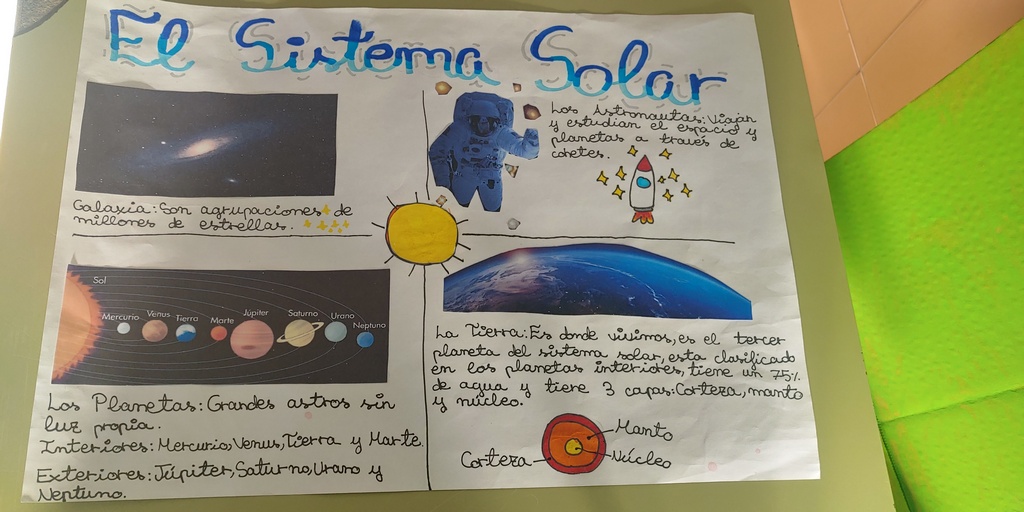 El Sistema Solar
Galaxia: Son agrupaciones de
millones de estrellas.
Los Astronautas: Viajan
y estudian el espacio y
planetas a través de
cohetes.
Sol
Mercurio
Venus
Tierra
Marte
Júpiter
Saturno
Urano
Neptuno
Los Planetas: Grandes astros sin
luz propia.
Interiores: Mercurio, Venus, Tierra y Marte.
Exteriores: Júpiter, Saturno, Urano y
Neptuno.
La Tierra: Es donde vivimos, es el tercer
planeta del sistema solar, esta clasificado
en los planetas interiores, tiene un 75%
de agua y tiene 3 capas: Corteza, manto
y núcleo.
Manto
Corteza
Núcleo